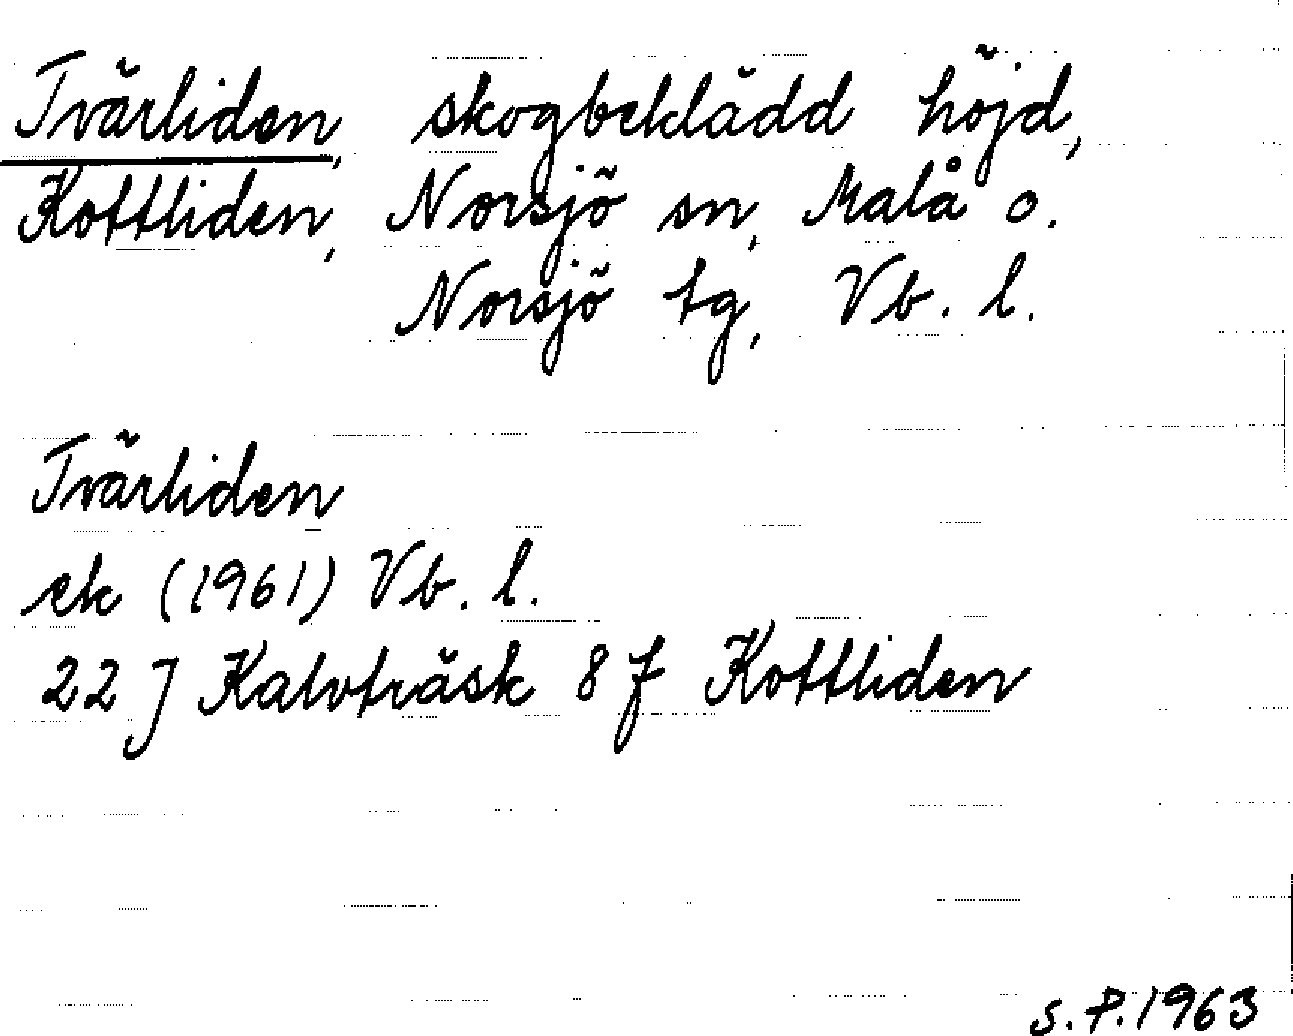 Tvärliden, skogbeklädd höjd,
Kottliden, Norsjö sn, Malå o.
Norsjö tg, Vb. l.
Tvärliden
ek (1961) Vb. l.
22 J Kalvträsk 8 f Kottliden
S. P. 1963